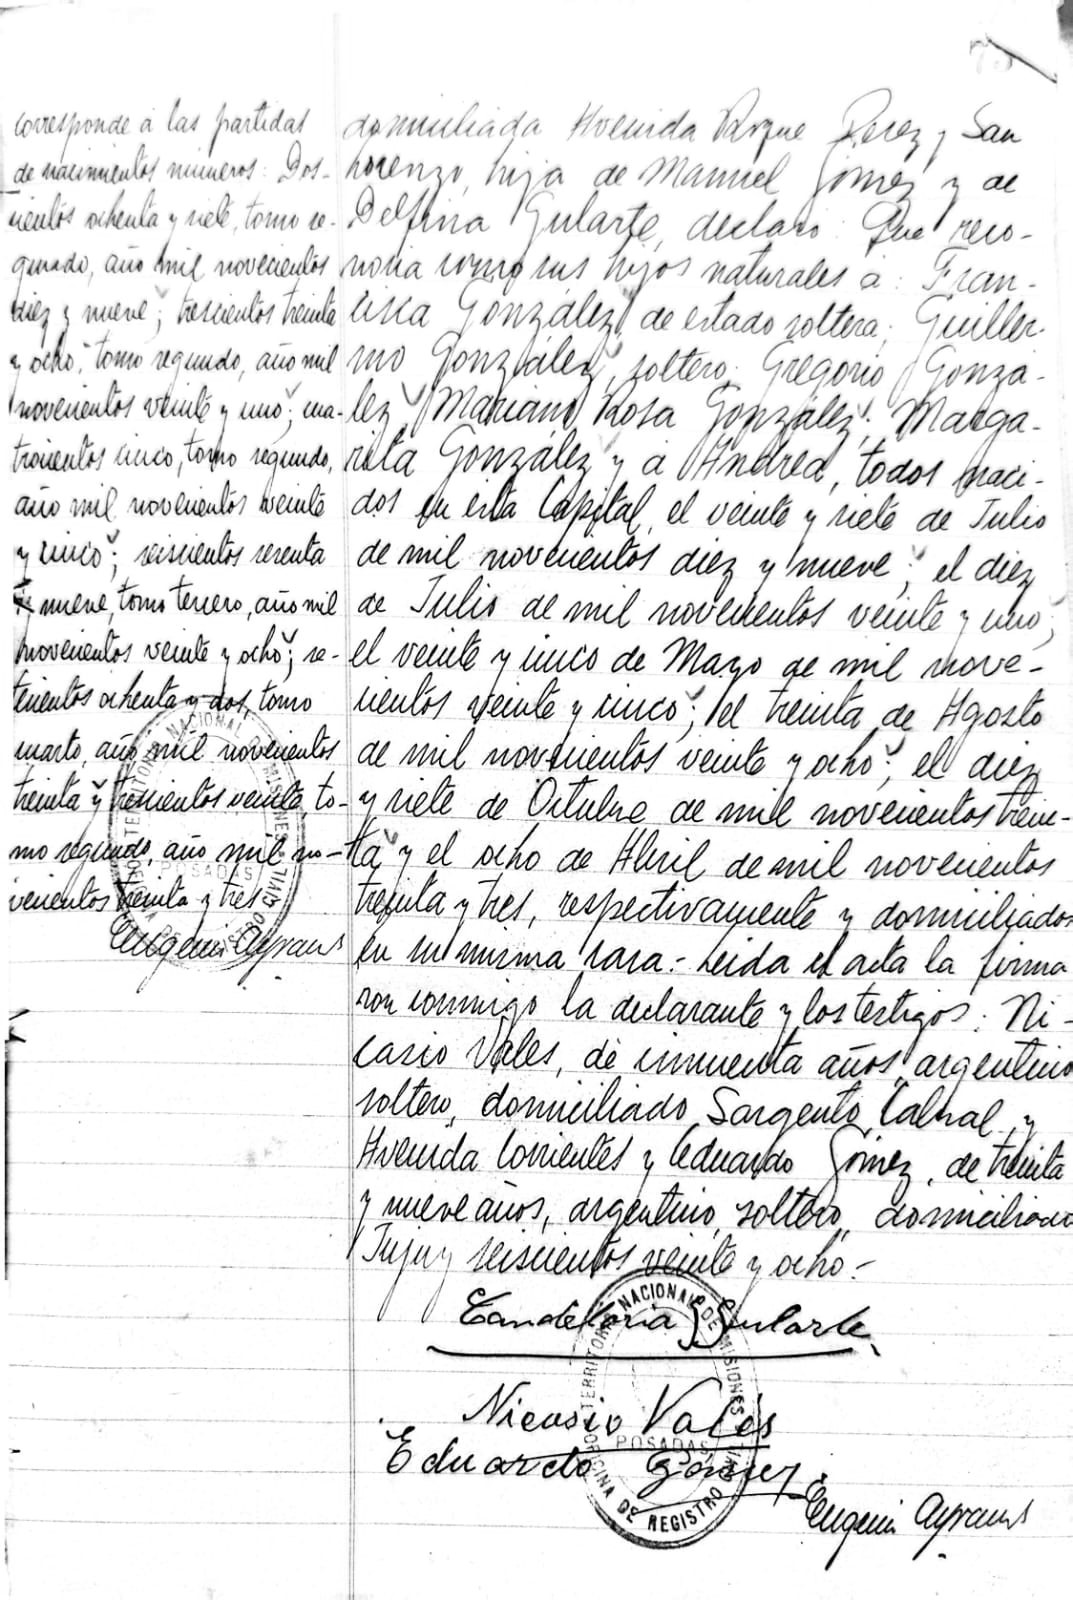 corresponde á las partidas
de nacimientos números: Dos-
cientos ochenta y siete, tomo se-
gundo, año mil novecientos
diez y nueve; trescientos treinta
y ocho, tomo segundo, año mil
novecientos veinte y uno; cua-
trocientos cinco, tomo segundo,
año mil novecientos veinte
y cinco; seiscientos sesenta
y nueve, tomo tercero, año mil
novecientos veinte y ocho; se-
tecientos ochenta y dos, tomo
cuarto, año mil novecientos
treinta y trescientos veinte, to-
mo segundo, año mil no-
vecientos treinta y tres
domiciliada Avenida Roque Perez y San
Lorenzo, hija de Manuel Gómez y de
Delfina Gularte, declaró: Que reco-
nocía como sus hijos naturales á: Fran-
cisca González, de estado soltera; Guiller-
mo González, soltero; Gregorio Gonzá-
lez; Mariano Rosa González; Marga-
rita González y á Andrea, todos naci-
dos en esta Capital, el veinte y siete de Julio
de mil novecientos diez y nueve; el diez
de Julio de mil novecientos veinte y uno;
el veinte y cinco de Mayo de mil nove-
cientos veinte y cinco; el treinta de Agosto
de mil novecientos veinte y ocho; el diez
y siete de Octubre de mil novecientos trein-
ta y el ocho de Abril de mil novecientos
treinta y tres, respectivamente y domiciliados
en su misma casa.- Leida el acta la firma
ron conmigo la declarante y los testigos: Ni-
casio Vales, de cincuenta años, argentino
soltero, domiciliado Sargento Cabral y
Avenida Corrientes y Eduardo Gómez, de treinta
y nueve años, argentino, soltero, domiciliado
Jujuy seiscientos veinte y ocho.-
Candelaria Gularte
Nicasio Vales
Eduardo Gómez
TERRITORIO NACIONAL DE MISIONES
POSADAS
OFICINA DE REGISTRO CIVIL